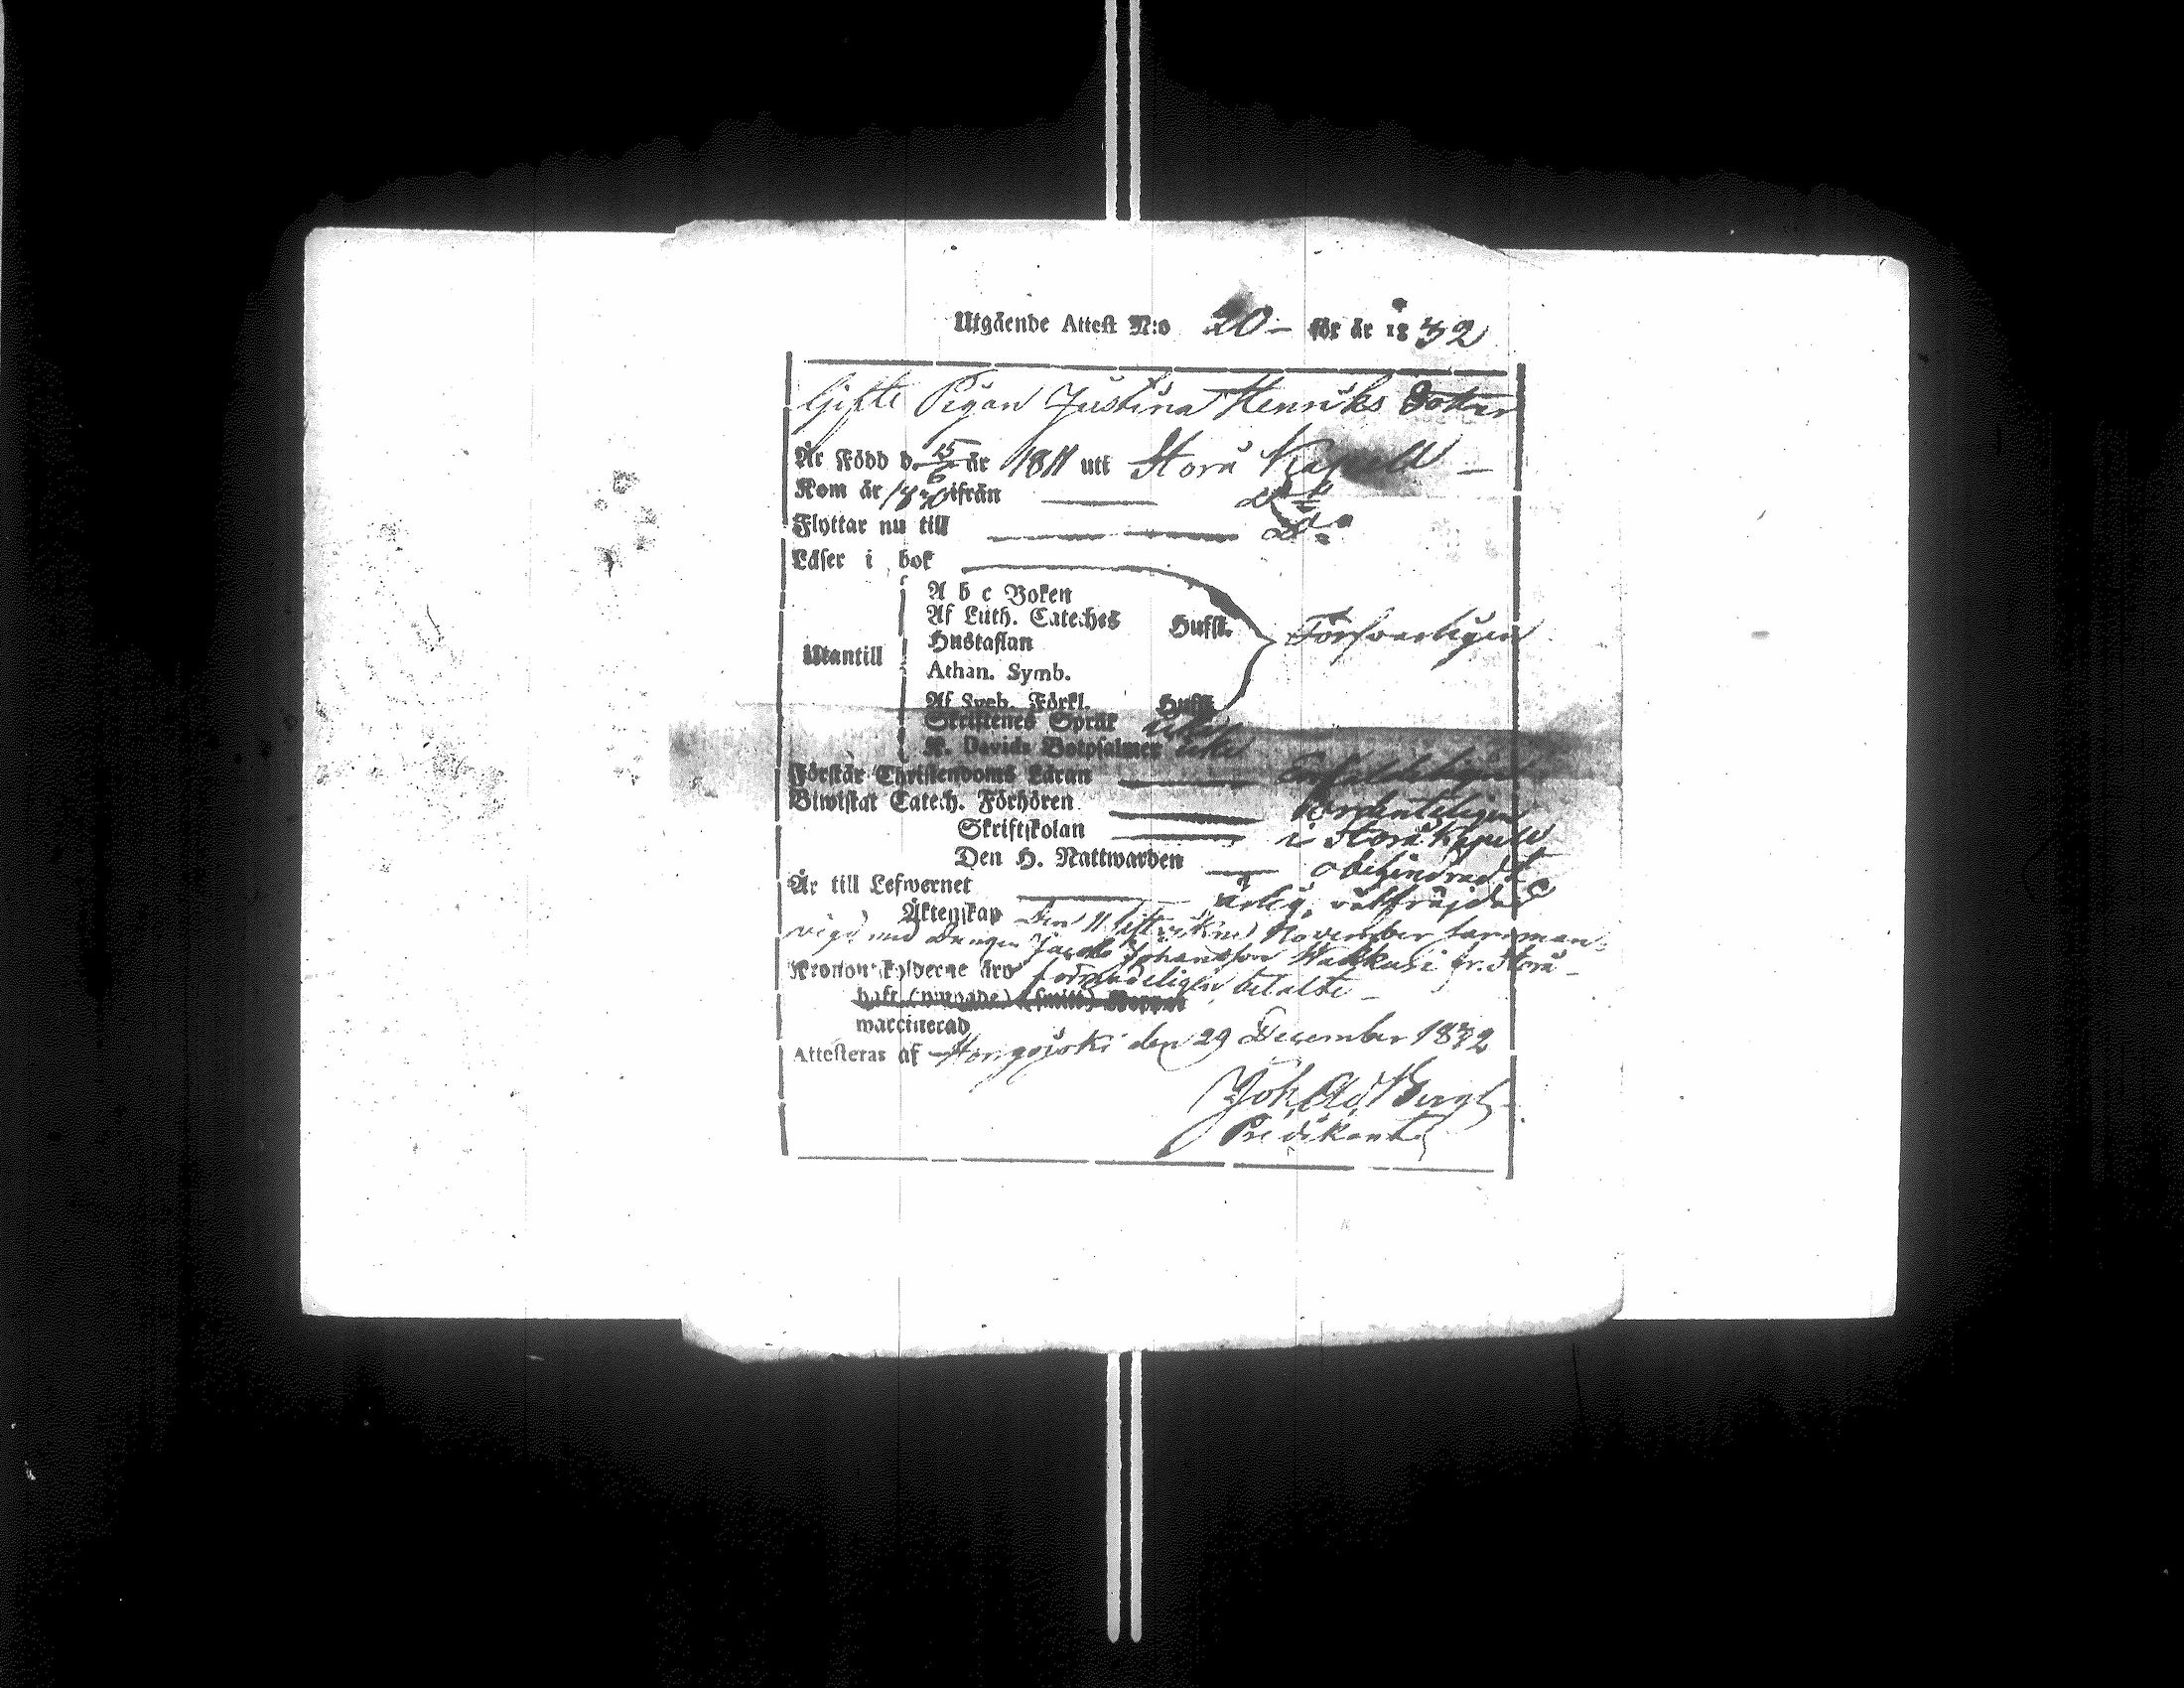 Utgående Attest N:o 20 – för år 1832
Gifte Pigan Justina Henriks Dotter
Är Född d. 15/6 år 1811 uti Storå Kapell –
Kom år 1830 ifrån — d:o
Flyttar nu till — D:o
Läser i bok
A b c Boken
Af Luth. Cateches Hufst. Försvarligen
Hustaflan
Utantill
Athan. Symb.
Af Sveb. Förkl. Hufst.
Skriftenes Språk icke
K. Davids Botpsalmer icke
Förstår Christendoms Läran — Enfaldeligen
Biwistat Catech. Förhören — ordenteligen
Skriftskolan — i Storå Kapell
Den H. Nattwarden — obehindrad
Är till Lefwernet — ärlig, välfräjdad
Äktenskap Den 11 November samman-
vigd med Drengen Jacob Johansson Wakkuri fr. Storå –
Kronoutskylderne äro betalte –
haft (ympade) Koppor
waccinerad
Attesteras af den 29 December 1832
Joh. Ad. Bergh
Predikant